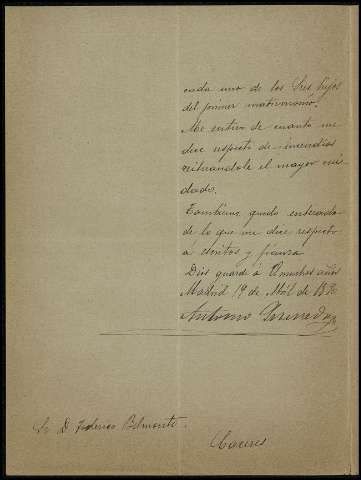 cada uno de los tres hijos
del primer matrimonio.
Me entero de cuanto me
dice respecto de incendios
reiterandole el mayor cui-
dado.
Tambien quedo enterado
de lo que me dice respecto
á and y
Dios guarde á V muchos años
Madrid 19 de Abril de 18
Antonio
Sr D. Federico Belmonte.
Caceres